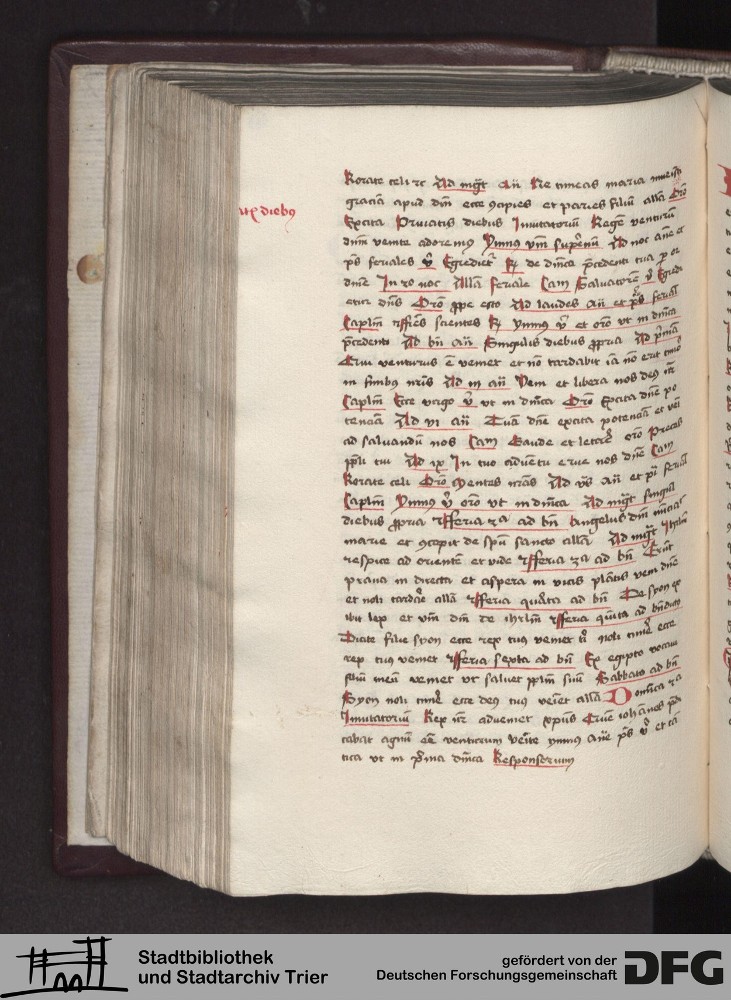 Rorate celi rc Ad mgt an Ne timeas maria inuenisti
graciã apud dm ecce ꝯcipies et paries filiũ alla Oro
Excita Priuatis diebus Inuitatoriũ Regẽ venturũ
dnm venite adoremus Ymnus vm supernũ Ad noc ane et
ps feriales v Egrediet R de dmica precedenti tua p or
dinẽ In ro noc Alla feriale Cam Saluatorem v Egredi
etur dns Oro ppe esto Ad laudes an et ps ferial
Caplm ffres scientes R ymnus v et oro vt in dmica
precedenti Ad bn an Singulis diebus ppria Ad primã
Qui venturus ẽ veniet et nõ tardabit iã nõ erit timor
in finibus nris Ad iii an Veni et libera nos deus nr
Caplm Ecce virgo v vt in dmica Oro Excita dne po
tenciã Ad vi an Tuã dne excita potenciã et veni
ad saluandũ nos Cam Gaude et letare oro Preces
ppli tui Ad ix In tuo aduentu erue nos dne Cam
Rorate celi Oro Mentes nras Ad vs an et ps ferial
Caplm Ymnus v oro vt in dmica Ad mgt singul
diebus ppria fferia 2a ad bn Angelus dni nũciauit
marie et ꝯcepit de spu sancto alla Ad mgt Ihrlm
respice ad orientẽ et vide fferia 3a ad bn Erũt
praua in directa et aspera in vias planas veni dne
et noli tardare alla fferia quarta ad bn De syon ex
ibit lex et vm dni de ihrlm fferia quinta ad bndictus
Dicite filie syon ecce rex tuus veniet ti noli timere ecce
rex tuus veniet fferia sexta ad bn Ex egipto vocaui
filiũ meũ veniet vt saluet pplm suũ Sabbato ad bn
Syon noli timere ecce deus tuus veniet alla Domica 2a
Inuitatoriũ Rex nr adueniet xpus Quẽ iohãnes pdi
cabat agnũ eẽ venturum venite ymnus ane ps v et cã
tica vt in prima dmica Responsorium
diebus
Stadtbibliothek
und Stadtarchiv Trier
gefördert von der
Deutschen Forschungsgemeinschaft
DFG